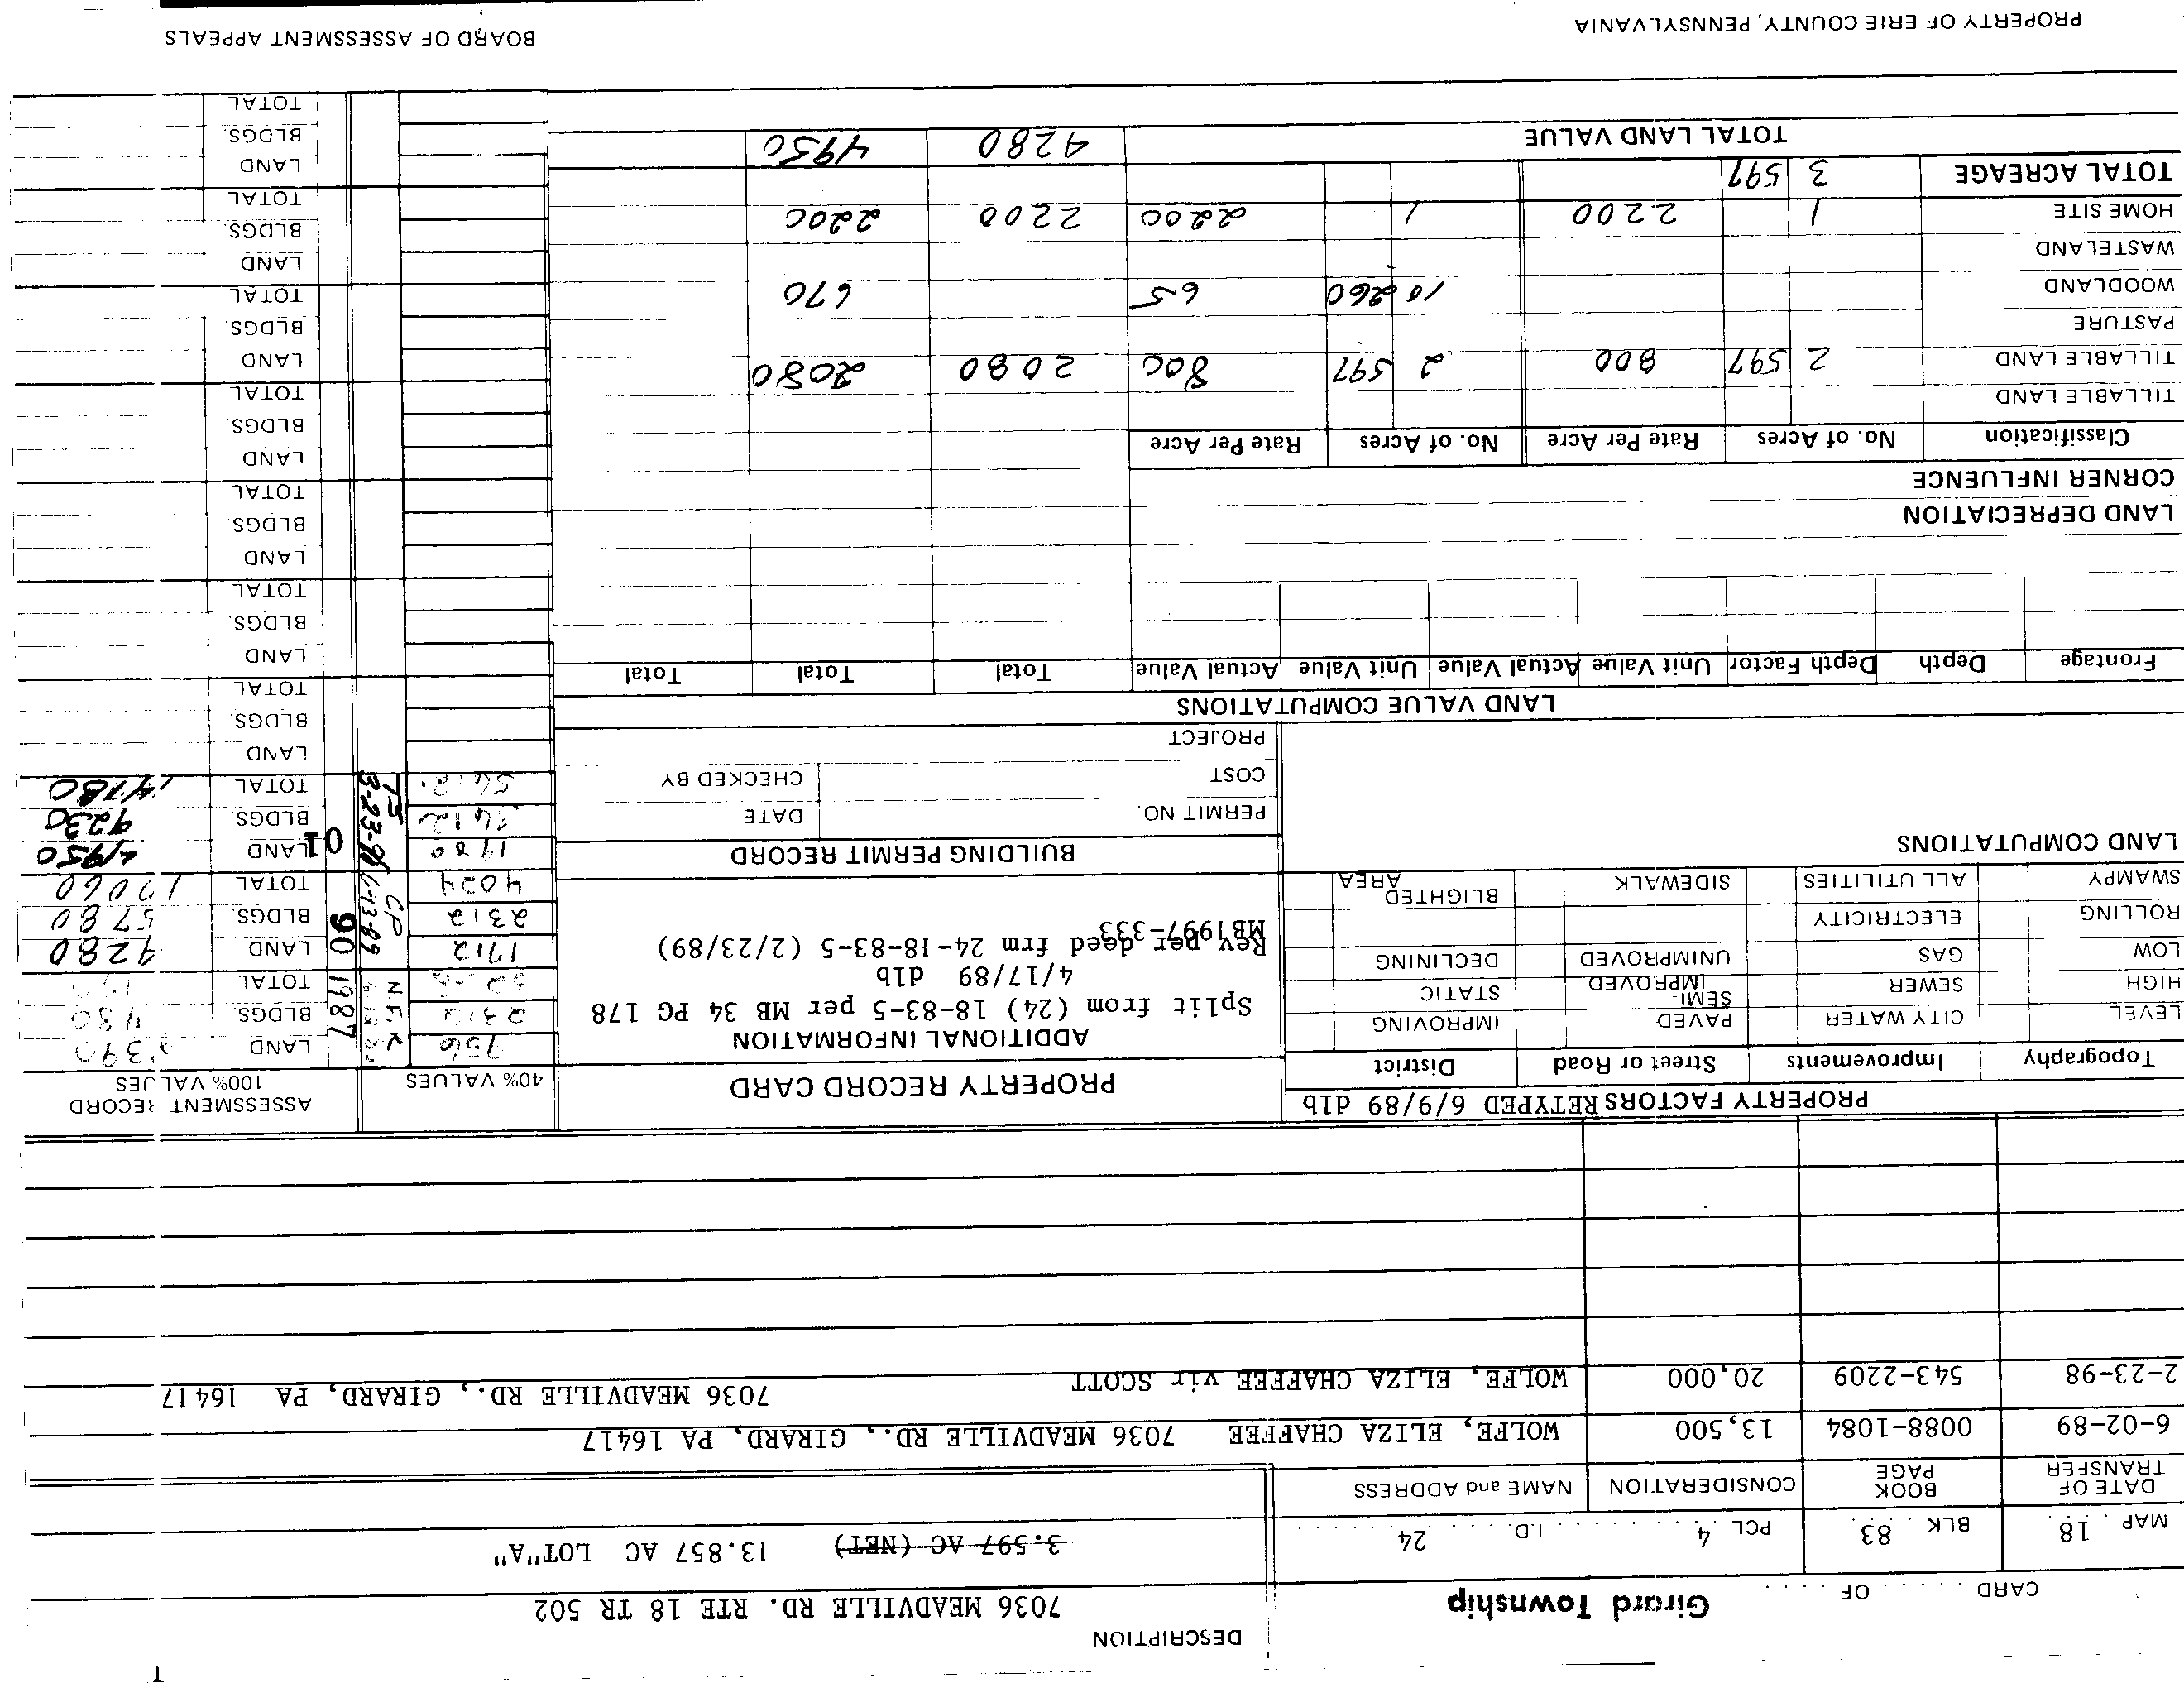 DESCRIPTION
CARD . . . . . OF . . . . Girard Township
7036 MEADVILLE RD. RTE 18 TR 502
MAP . 18 BLK . 83 PCL . 4 I.D. 24
3.597 AC (NET) 13.857 AC LOT"A"
DATE OF TRANSFER BOOK PAGE CONSIDERATION NAME and ADDRESS
6-02-89 0088-1084 13,500 WOLFE, ELIZA CHAFFEE 7036 MEADVILLE RD., GIRARD, PA 16417
2-23-98 543-2209 20,000 WOLFE, ELIZA CHAFFEE vir SCOTT 7036 MEADVILLE RD., GIRARD, PA 16417
PROPERTY FACTORS RETYPED 6/9/89 dlb
Topography Improvements Street or Road District
LEVEL CITY WATER PAVED IMPROVING
HIGH SEWER SEMI-IMPROVED STATIC
LOW GAS UNIMPROVED DECLINING
ROLLING ELECTRICITY
SWAMPY ALL UTILITIES SIDEWALK BLIGHTED AREA
LAND COMPUTATIONS
PROPERTY RECORD CARD
ADDITIONAL INFORMATION
Split from (24) 18-83-5 per MB 34 PG 178
4/17/89 dlb
Rev per deed frm 24-18-83-5 (2/23/89)
MB1997-333
BUILDING PERMIT RECORD
PERMIT NO. DATE
COST CHECKED BY
PROJECT
40% VALUES ASSESSMENT RECORD 100% VALUES
756 N.F.K. 1987 LAND
2312 BLDGS.
TOTAL
1712 CP 6-13-89 90 LAND 4280
2312 BLDGS. 5780
4024 TOTAL 10060
1980 TS 01 LAND 4950
BLDGS. 9230
TOTAL 14180
LAND
BLDGS.
TOTAL
LAND
BLDGS.
TOTAL
LAND
BLDGS.
TOTAL
LAND
BLDGS.
TOTAL
LAND
BLDGS.
TOTAL
LAND
BLDGS.
TOTAL
LAND
BLDGS.
TOTAL
LAND VALUE COMPUTATIONS
Frontage Depth Depth Factor Unit Value Actual Value Unit Value Actual Value Total Total Total
LAND DEPRECIATION
CORNER INFLUENCE
Classification No. of Acres Rate Per Acre No. of Acres Rate Per Acre
TILLABLE LAND
TILLABLE LAND 2 597 800 2 597 800 2080 2080
PASTURE
WOODLAND 10 260 65 670
WASTELAND
HOME SITE 1 2200 1 2200 2200 2200
TOTAL ACREAGE 3 597
TOTAL LAND VALUE 4280 4950
PROPERTY OF ERIE COUNTY, PENNSYLVANIA
BOARD OF ASSESSMENT APPEALS